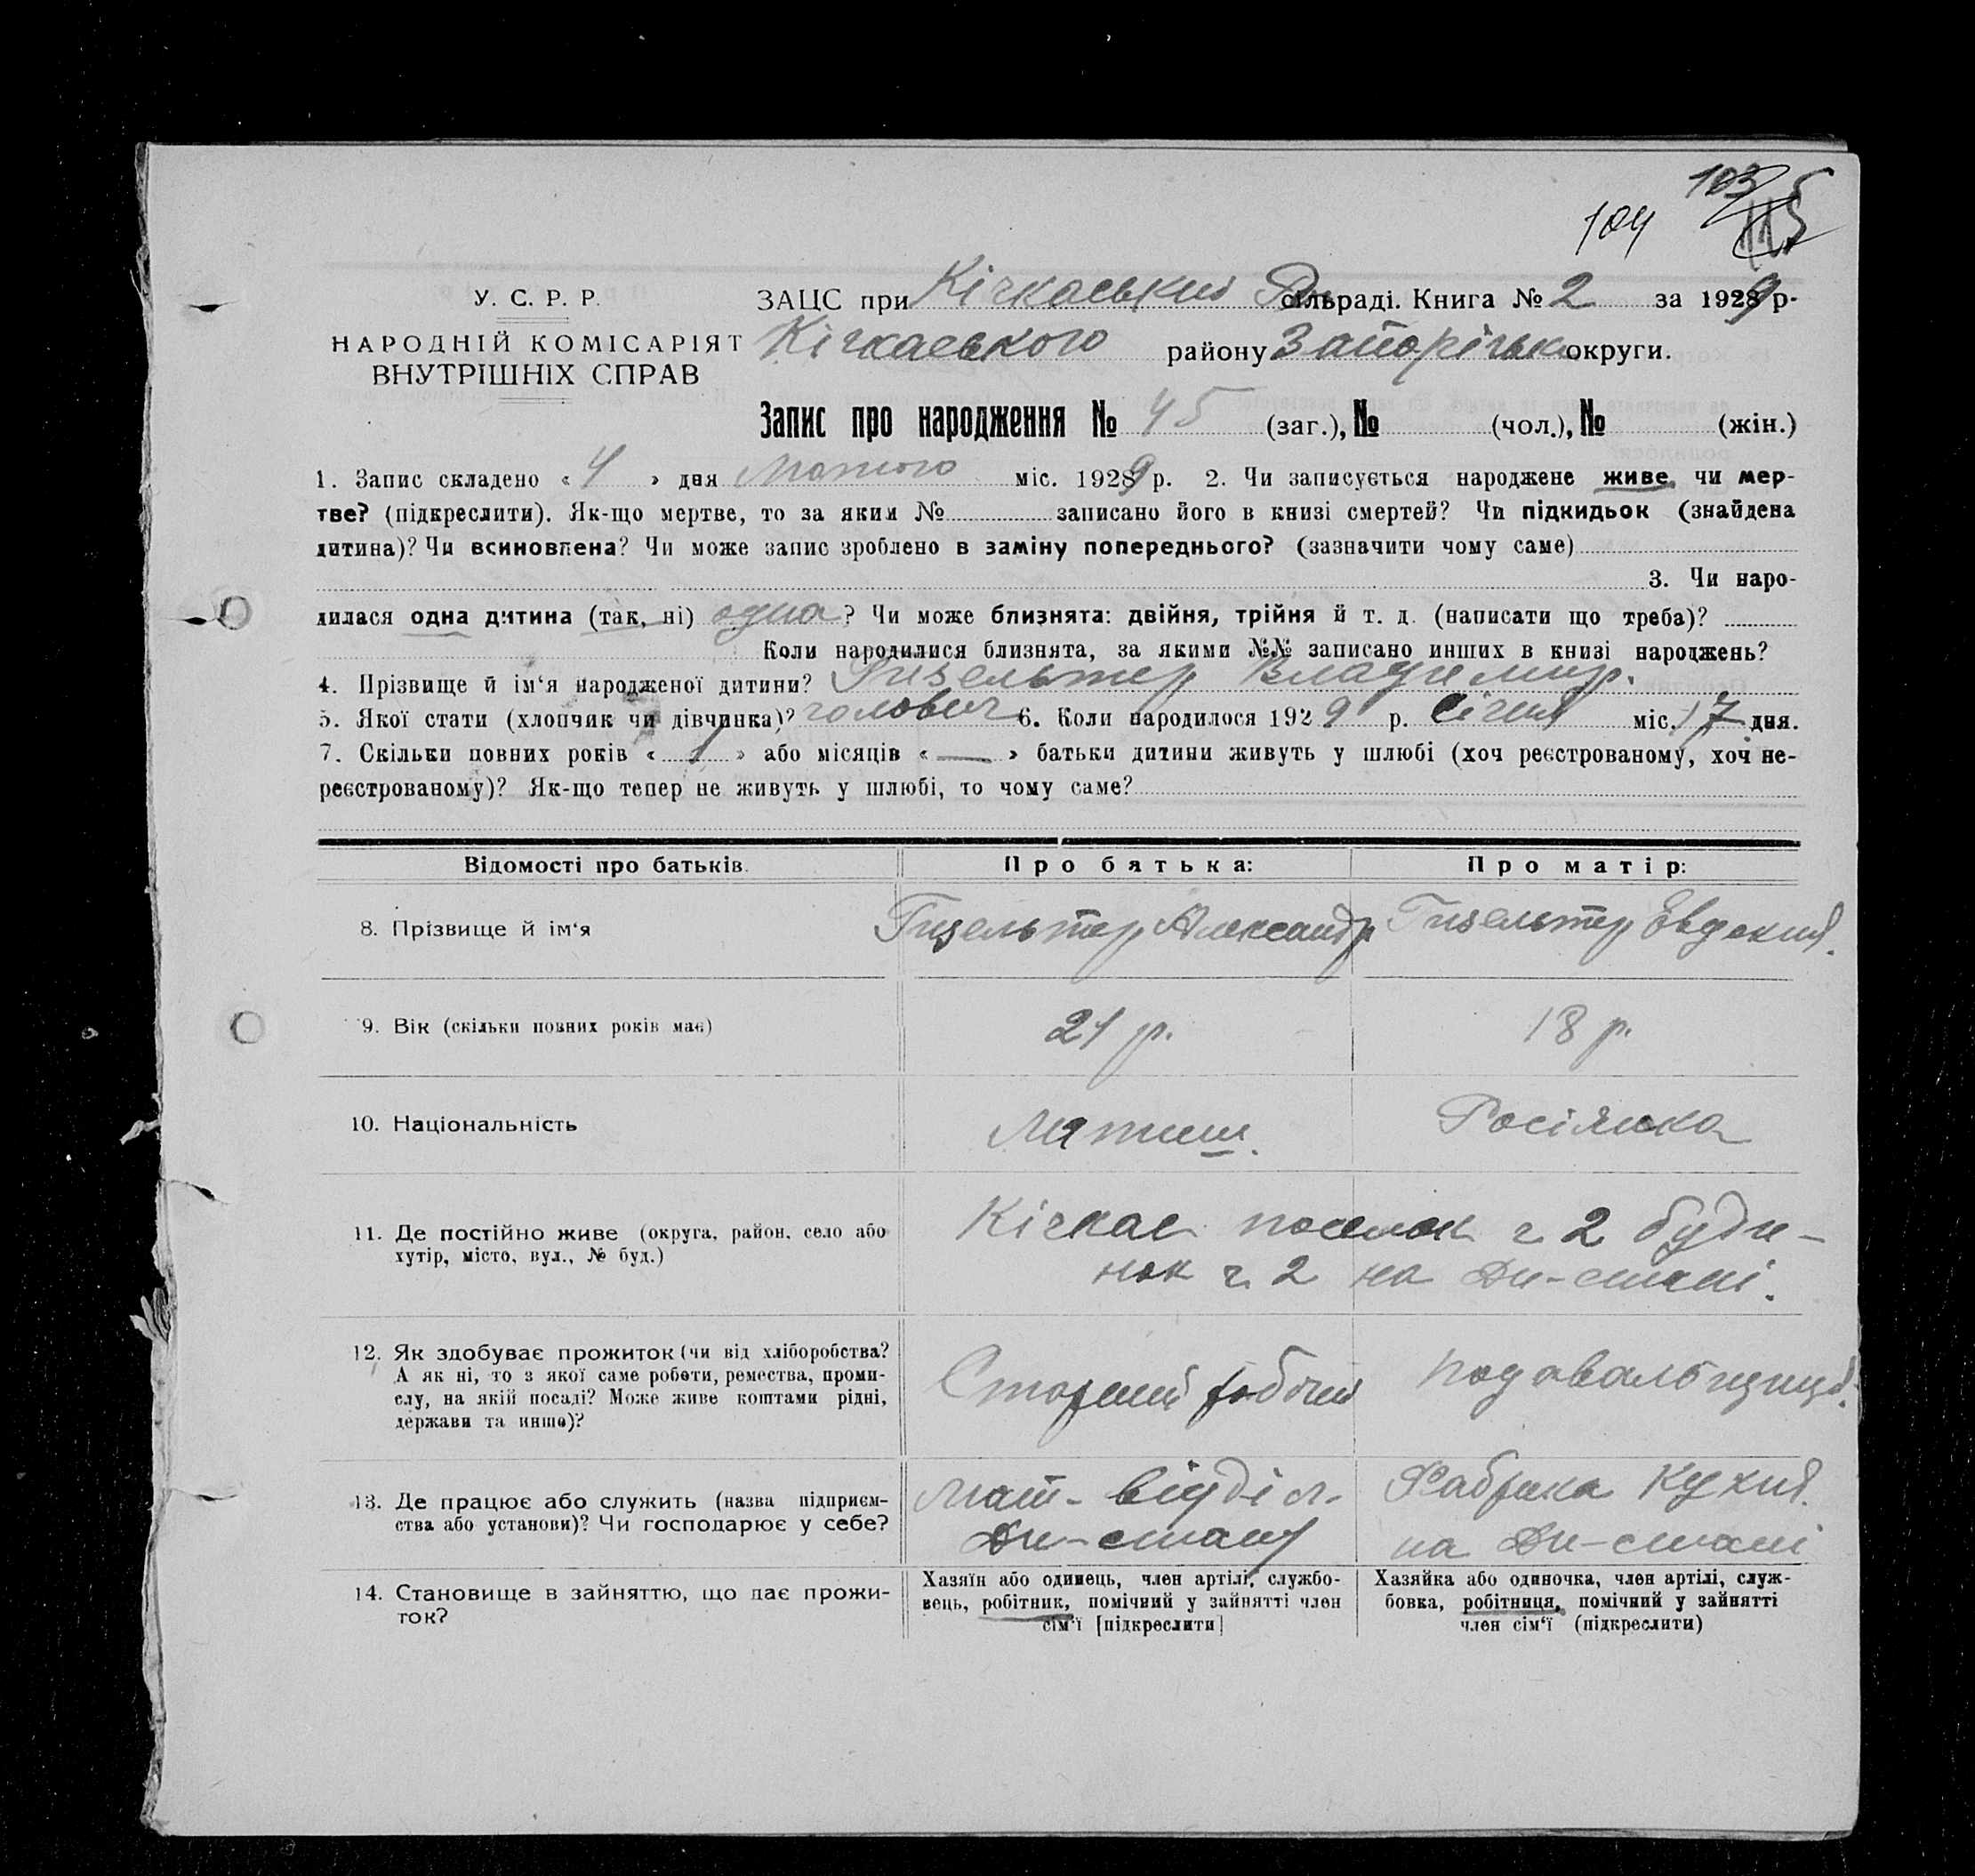 103
104 115
У. С. Р. Р.
НАРОДНІЙ КОМІСАРІЯТ
ВНУТРІШНІХ СПРАВ
ЗАЦС при Кічкаський сільраді. Книга № 2 за 1929 р.
Кічкаського району Запорізька округи.
Запис про народження № 45 (заг.), № (чол.), № (жін.)
1. Запис складено « 4 » дня Лютого міс. 1929 р. 2. Чи записується народжене живе чи мер-
тве? (підкреслити). Як-що мертве, то за яким № записано його в книзі смертей? Чи підкидьок (знайдена
дитина)? Чи всиновлена? Чи може запис зроблено в заміну попереднього? (зазначити чому саме)
3. Чи наро-
дилася одна дитина (так, ні) одна? Чи може близнята: двійня, трійня й т. д. (написати що треба)?
Коли народилися близнята, за якими №№ записано инших в книзі народжень?
4. Прізвище й ім‘я народженої дитини? Гизельтер Владимир.
5. Якої стати (хлопчик чи дівчинка)? чоловіч 6. Коли народилося 1929 р. Січня міс. 17 дня.
7. Скільки повних років « 1 » або місяців « — » батьки дитини живуть у шлюбі (хоч реєстрованому, хоч не-
реєстрованому)? Як-що тепер не живуть у шлюбі, то чому саме?
Відомості про батьків. Про батька: Про матір:
8. Прізвище й ім‘я Гизельтер Александр Гизельтер Евдокия.
9. Вік (скільки повних років має) 21 р. 18 р.
10. Національність Латиш. Росіянка
11. Де постійно живе (округа, район, село або
хутір, місто, вул., № буд.)
Кічкас поселок ч 2 буди-
нок ч. 2 на Дн-стані.
12. Як здобуває прожиток (чи від хліборобства?
А як ні, то з якої саме роботи, ремества, проми-
слу, на якій посаді? Може живе коштами рідні,
держави та инше)?
Старший робочий Подавальщиця.
13. Де працює або служить (назва підприєм-
ства або установи)? Чи господарює у себе?
Мат- відділ. Фабрика Кухня.
Дн-стану на Дн-стані
14. Становище в зайняттю, що дає прожи-
ток?
Хазяїн або одинець, член артілі, службо-
вець, робітник, помічний у зайнятті член
сім‘ї [підкреслити]
Хазяйка або одиночка, член артілі, служ-
бовка, робітниця, помічний у зайнятті
член сім‘ї (підкреслити)